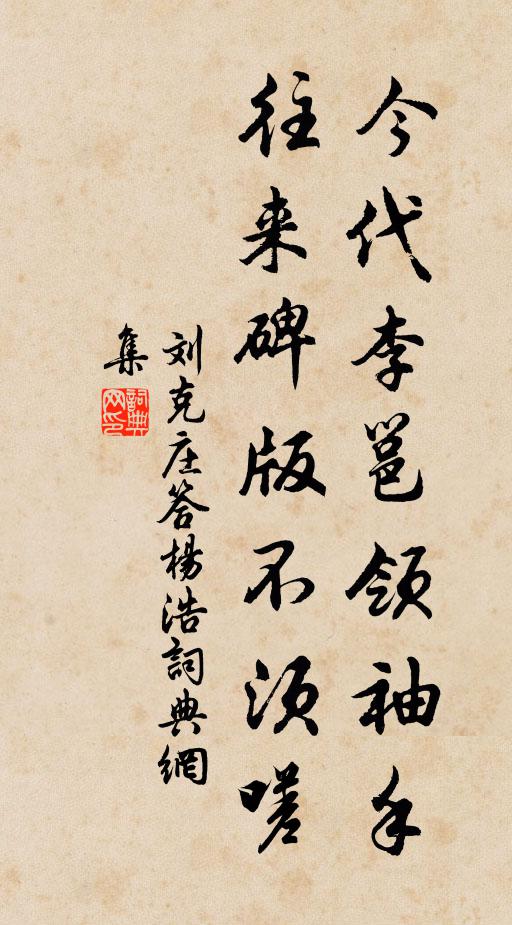 今代李邕领袖手
往来碑版不须嗟
刘克庄答杨浩詞典網
集
詞典网印